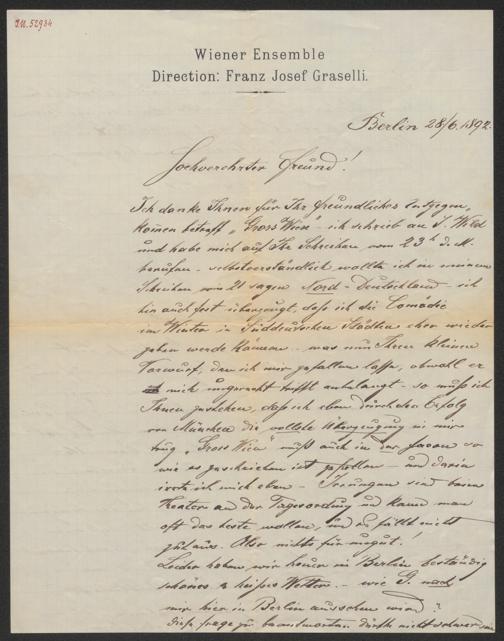 I.N. 52934
Wiener Ensemble
Direction: Franz Josef Graselli.
Berlin 28/6. 1892.
Hochverehrter Freund!
Ich danke Ihnen für Ihr freundliches Entgegen-
komen betreff „Gross Wien" – ich schrieb an J. Wild
und habe mich auf Ihr Schreiben vom 23ᵗ d. M.
berufen – selbstverständlich wollte ich in meinem
Schreiben vom 21 sagen Nord-Deutschland – ich
bin auch fest überzeugt, daß ich die Comödie
im Winter in Süddeutschen Städten eher wieder
geben werde können – was nun Ihren kleinen
Vorwurf, den ich mir gefallen lasse, obwohl er
mich ungerecht trifft anbelangt – so muß ich
Ihnen gestehen, daß ich eben durch den Erfolg
von München die vollste Überzeugung in mir
trug „Gross Wien" muß auch in der Façon so
wie es geschrieben ist gefallen – und darin
irrte ich mich eben – Irrungen sind beim
Theater an der Tagesordnung und kann man
oft das beste wollen, und es fällt nicht
gut aus. Also nichts für ungut!
Leider haben wir heuer in Berlin beständig
schönes & heißes Wetter. – wie G noch
mir hier in Berlin aussehen wird?
diese Frage zu beantworten dürfte nicht schwer sein